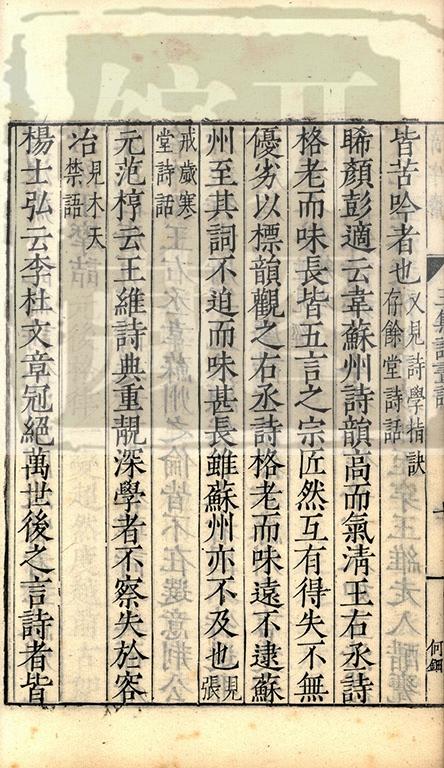 皆苦吟者也又見詩學指訣存餘堂詩話
晞顏彭適云韋蘇州詩韻高而氣清王右丞詩
格老而味長皆五言之宗匠然互有得失不無
優劣以標韻觀之右丞詩格老而味遠不逮蘇
州至其詞不迫而味甚長雖蘇州亦不及也見張
戒歲寒堂詩話
元范梈云王維詩典重靚深學者不察失於容
冶見木天禁語
楊士弘云李杜文章冠絕萬世後之言詩者皆
何鈿